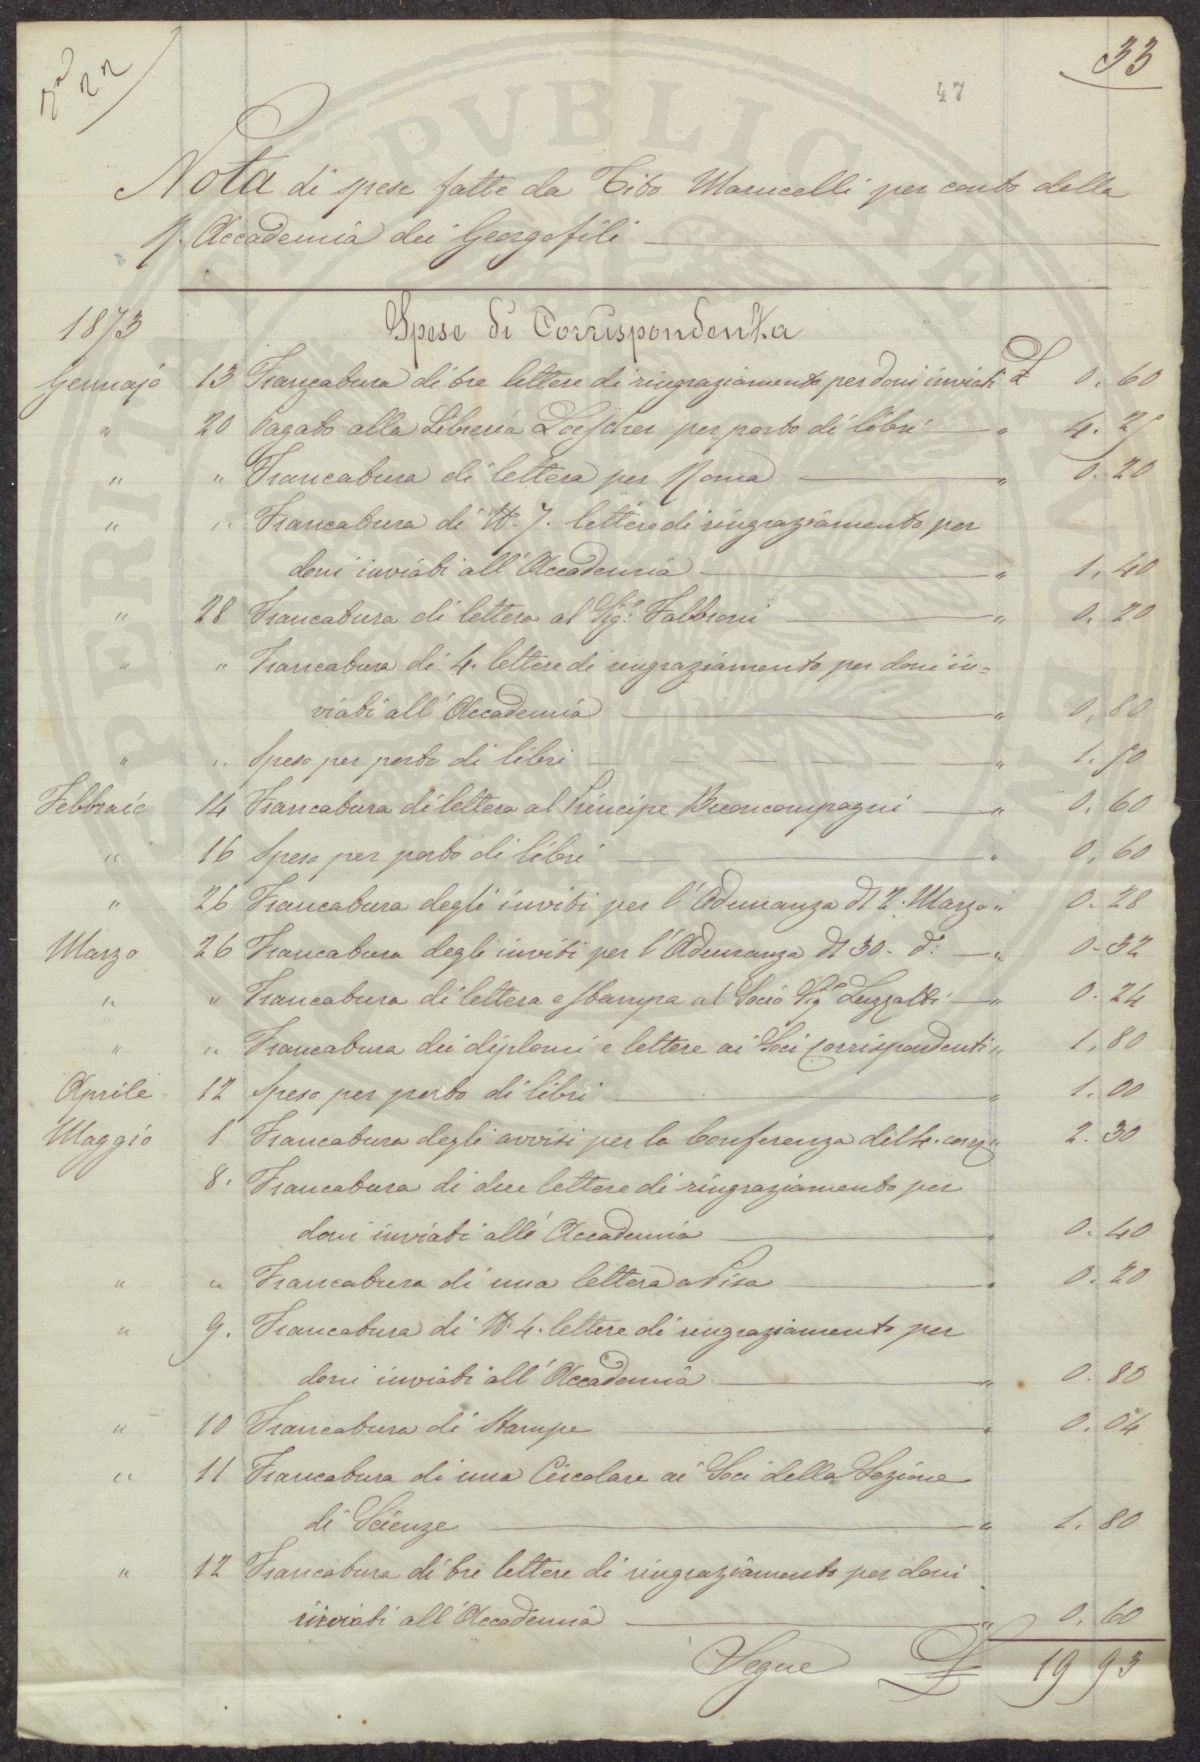 33
47
22
Nota di spese fatte da Tito Marucelli per conto della
R. Accademia dei Georgofili
1873
Spese di Corrispondenza
Gennajo 13 Francatura di tre lettere di ringraziamento per doni inviati £ 0. 60
" 20 Pagato alla Libreria Loescher per porto di libri " 4. 25
" " Francatura di lettera per Roma " 0. 20
" " Francatura di N. 7. lettere di ringraziamento per
doni inviati all'Accademia " 1. 40
" 28 Francatura di lettera al Sig.e Fabbroni " 0. 20
" " Francatura di 4. lettere di ringraziamento per doni in=
viati all'Accademia " 0. 80
" " Spese per porto di libri " 1. 50
Febbraio 14 Francatura di lettera al Principe Buoncompagni " 0. 60
" 16 Spese per porto di libri " 0. 60
" 26 Francatura degli inviti per l'Adunanza d1 2. Marzo " 0. 28
Marzo 26 Francatura degli inviti per l'Adunanza d1 30. d.o " 0. 32
" " Francatura di lettera e stampa al Socio Sig.e Luzzatti " 0. 24
" " Francatura dei diplomi e lettere ai Soci corrispondenti " 1. 80
Aprile 12 Spese per porto di libri " 1. 00
Maggio 1 Francatura degli avvisi per la Conferenza del 4. corr.e " 2. 30
8. Francatura di due lettere di ringraziamento per
doni inviati all'Accademia " 0. 40
" " Francatura di una lettera a Pisa " 0. 20
" 9. Francatura di N. 4. lettere di ringraziamento per
doni inviati all'Accademia " 0. 80
" 10 Francatura di Stampe " 0. 04
" 11 Francatura di una Circolare ai Soci della Sezione
di Scienze " 1. 80
" 12 Francatura di tre lettere di ringraziamento per doni
inviati all'Accademia " 0. 60
Segue £ 19 93